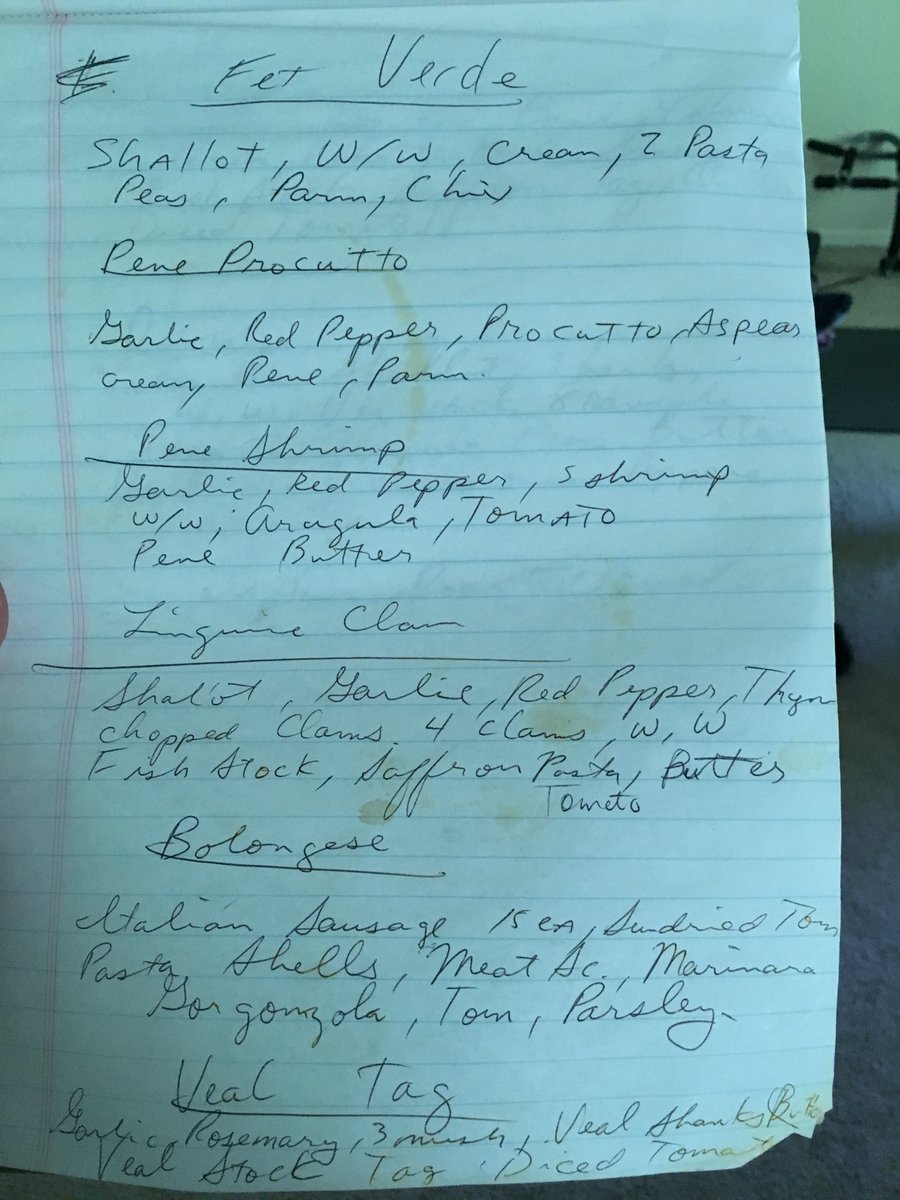 Fet Verde
Shallot, W/W, Cream, 2 Pasta
Peas, Parm, Chix
Pene Procutto
Garlic, Red Pepper, Procutto, Aspeas
cream, Pene, Parm.
Pene Shrimp
Garlic, Red Pepper, 5 shrimp
W/W, Aragula, Tomato
Pene Butter
Linguine Clam
Shallot, Garlic, Red Pepper, Thym
chopped Clams 4 clams, W, W
Fish Stock, Saffron Pasta, Butter
Tometo
Bolongese
Italian Sausage 15 EA, Sundried Tom
Pasta Shells, Meat Sc., Marinara
Gorgonzola, Tom, Parsley.
Veal Tag
Garlic, Rosemary, 3 mush, Veal Shanks
Veal Stock Tag Diced Tomat